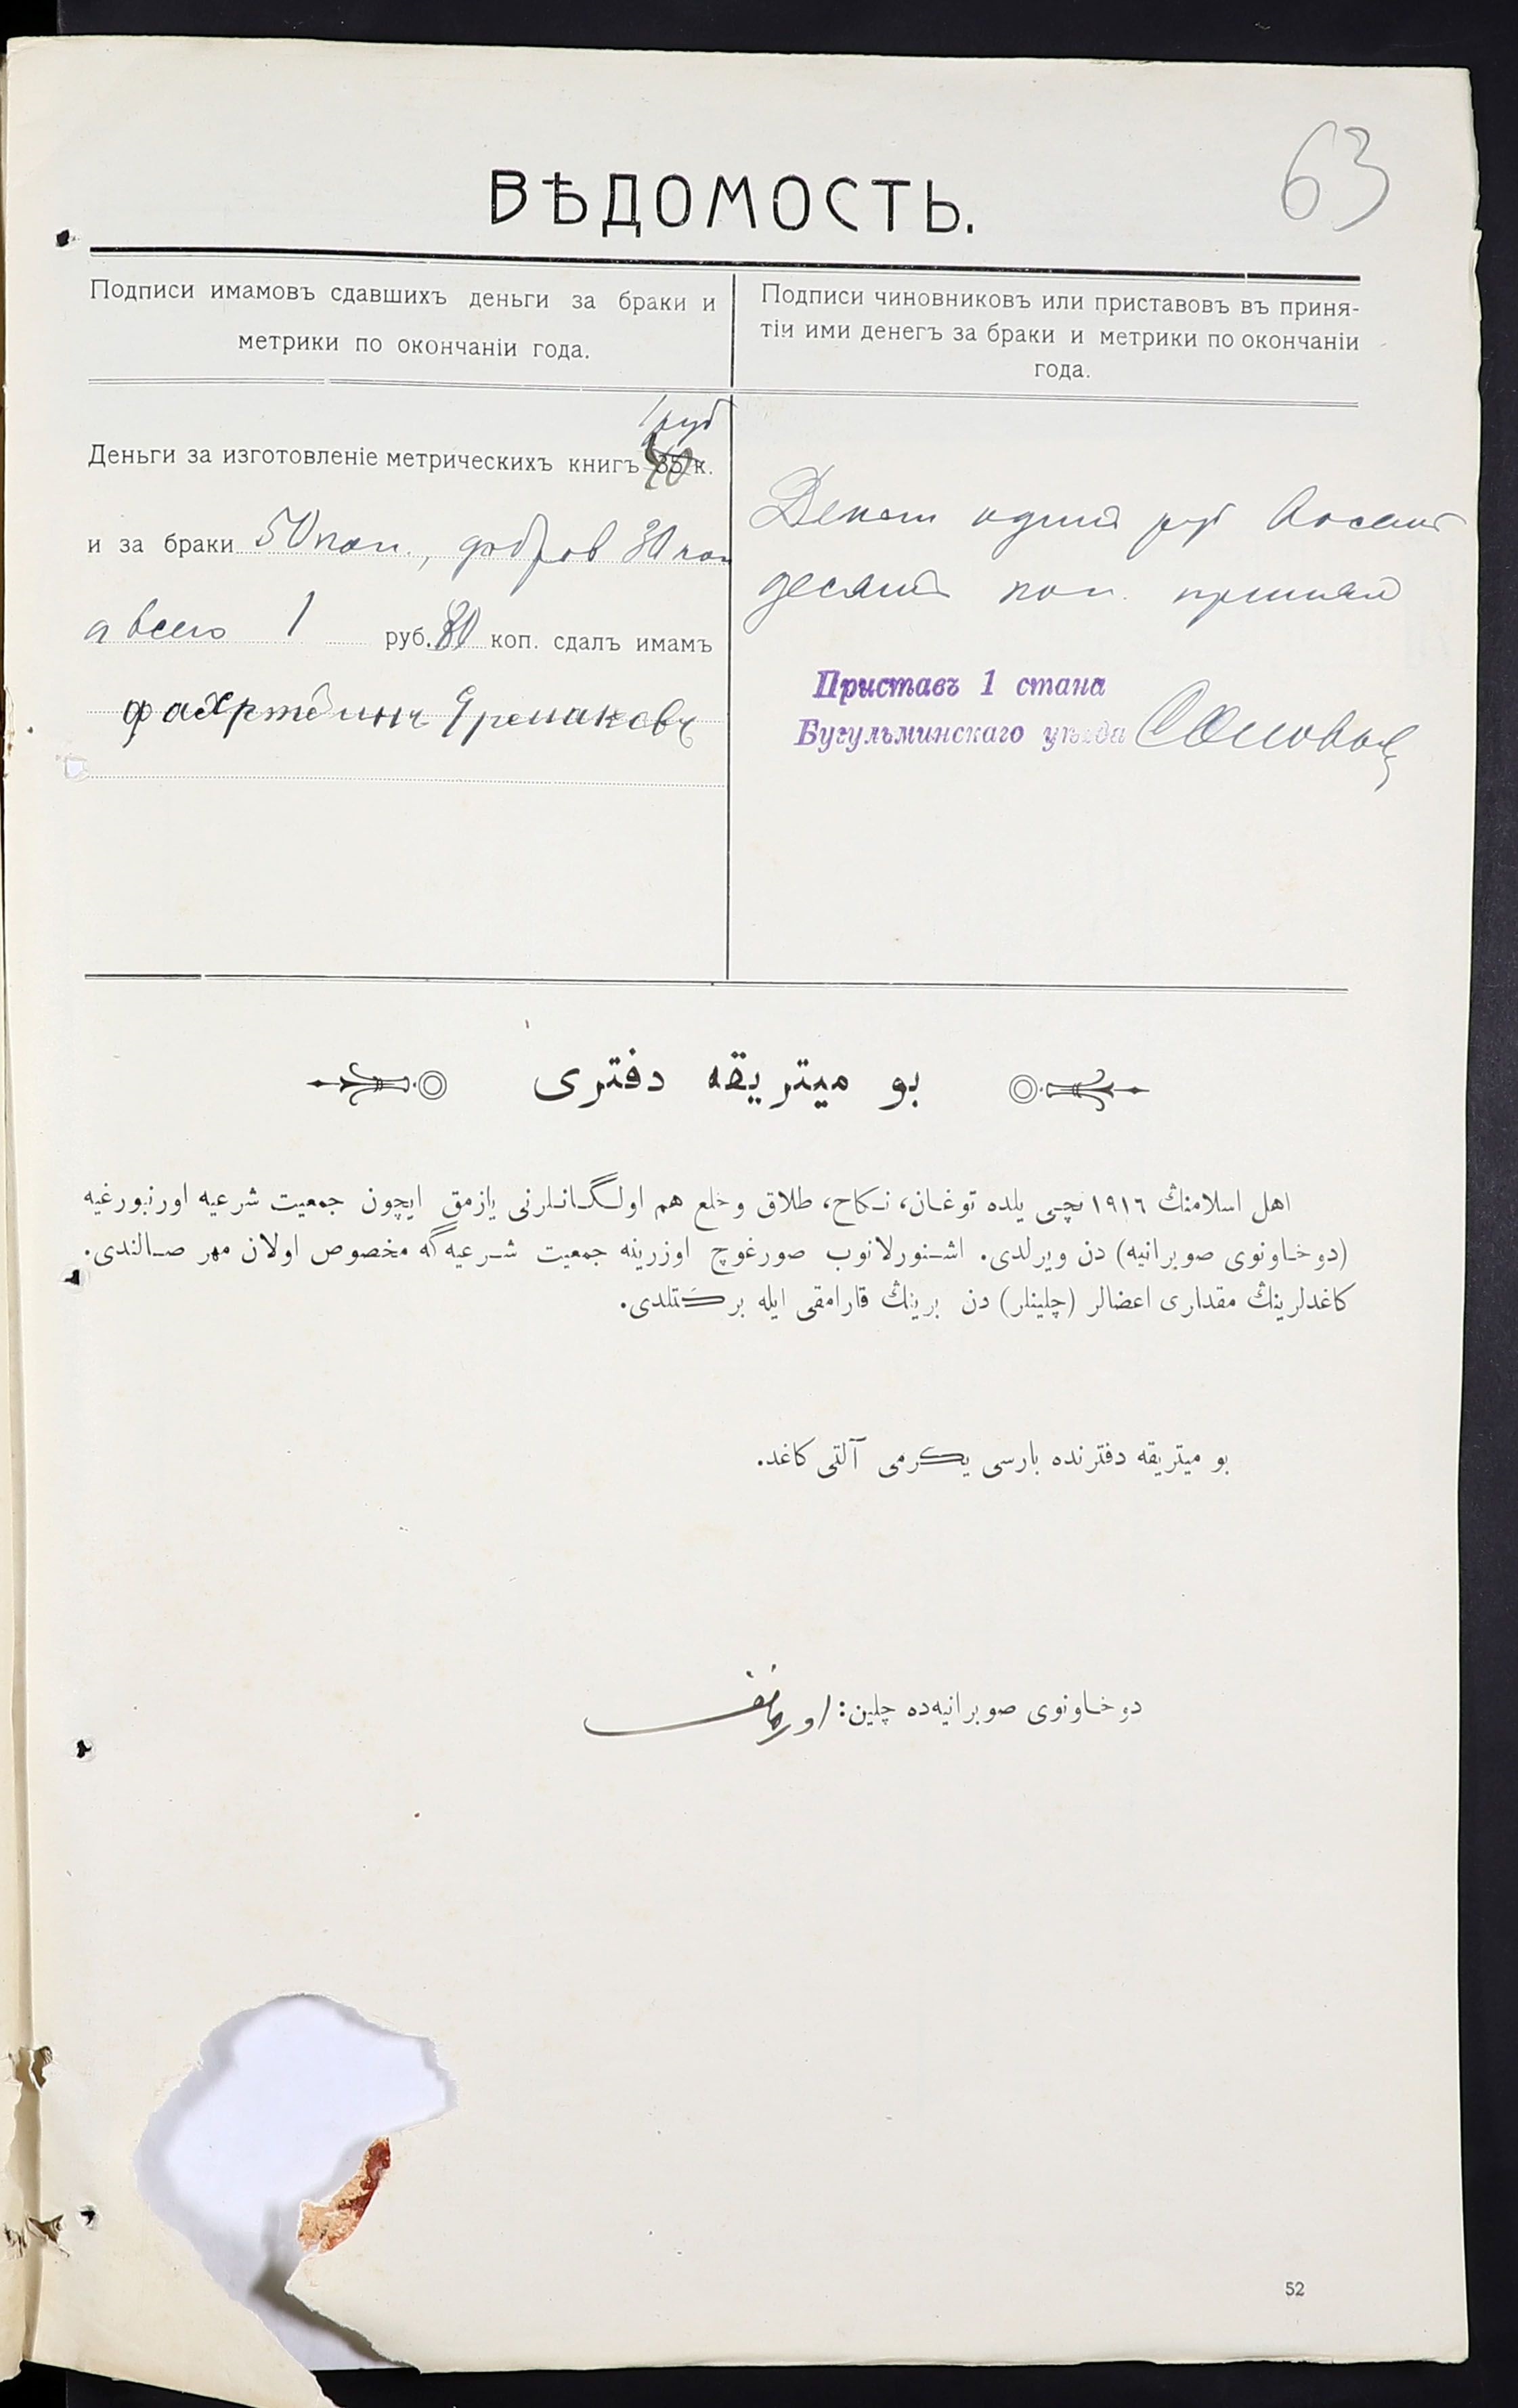 63
ВѢДОМОСТЬ.
Подписи имамовъ сдавшихъ деньги за браки и
метрики по окончаніи года.
Подписи чиновниковъ или приставовъ въ приня-
тіи ими денегъ за браки и метрики по окончаніи
года.
1 руб
Деньги за изготовленіе метрическихъ книгъ 35 к.
и за браки 50 коп., 30 коп
а всего 1 руб. 80 коп. сдалъ имамъ
Денег один руб восемь
десят коп. принял
Приставъ 1 стана
Бугульминскаго уѣзда
بو ميتريقه دفترى
اهل اسلامنڭ ١٩١٦ نچى يلده توغان، نكاح، طلاق و خلع هم اولگانلرنى يازمق ايچون جمعيت شرعيه اورنبورغيه
(دوخاونوى صوبرانيه) دن ويرلدى. اشنورلانوب صورغوچ اوزرينه جمعيت شرعيه گه مخصوص اولان مهر صالندى.
كاغدلرينڭ مقدارى اعضالر (چلينلر) دن برينڭ قارامقى ايله بركتلدى.
بو ميتريقه دفترنده بارسى يكرمى آلتى كاغد.
دوخاونوى صوبرانيه‌ده چلين:
52